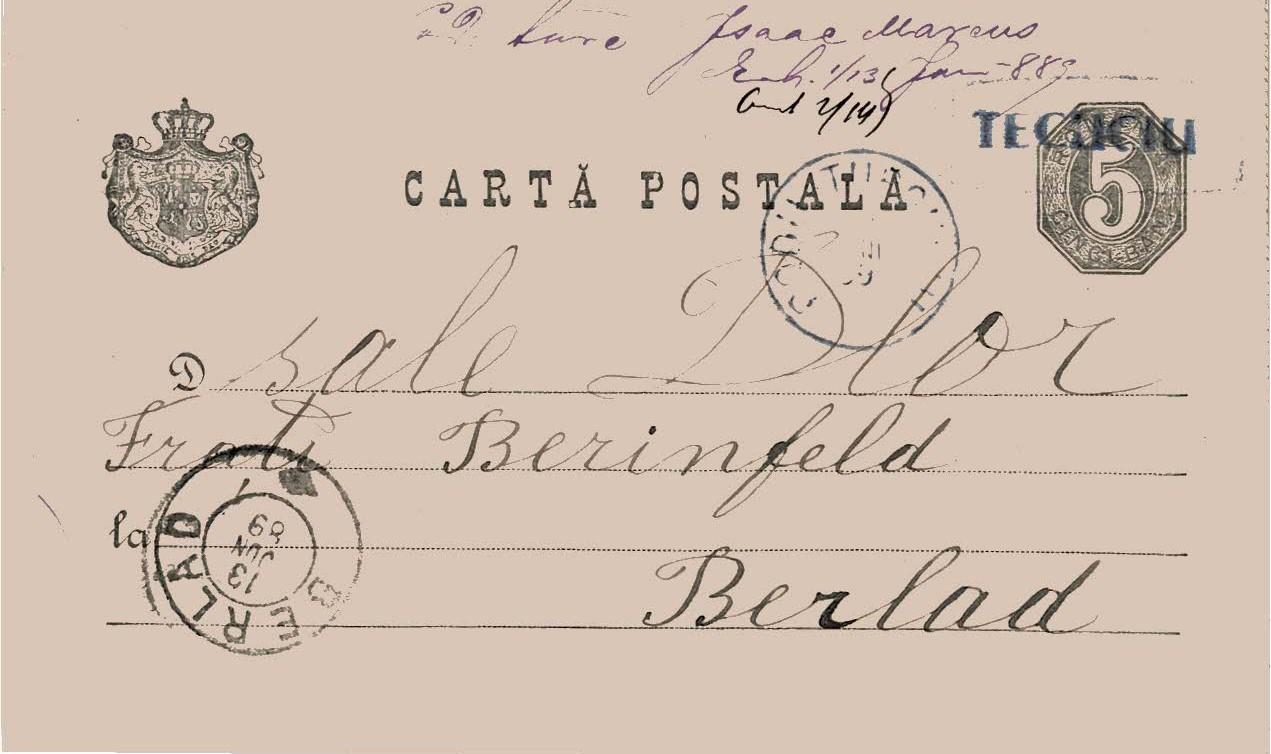 Isaac Marcus
1/13 Jun 889
2/14
TECUCIU
CARTĂ POSTALĂ
5
CINCI BANI
D sale Dlor
Frati Berinfeld
la
Berlad
BERLAD
13
JUN
89